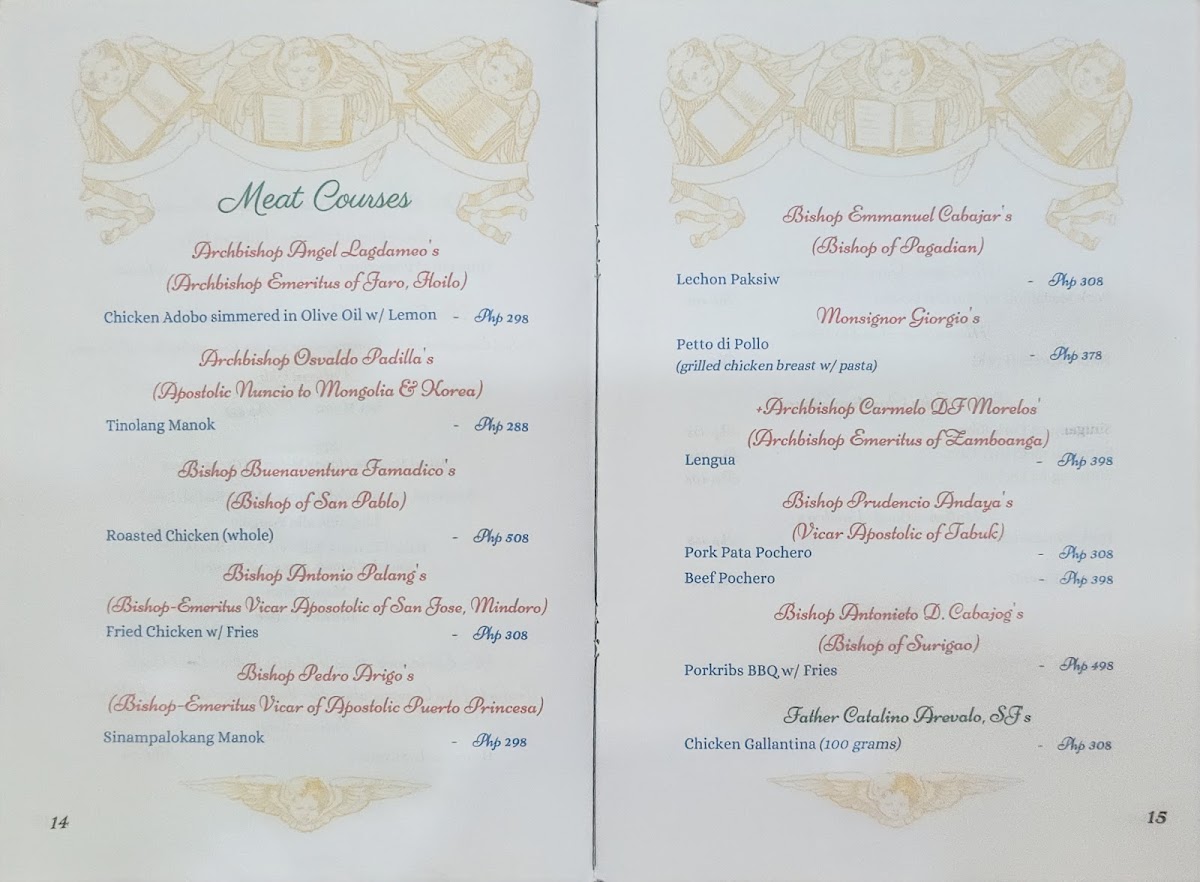 Meat Courses
Archbishop Angel Lagdameo's
(Archbishop Emeritus of Jaro, Iloilo)
Chicken Adobo simmered in Olive Oil w/ Lemon - Php 298
Archbishop Osvaldo Padilla's
(Apostolic Nuncio to Mongolia & Korea)
Tinolang Manok - Php 288
Bishop Buenaventura Famadico's
(Bishop of San Pablo)
Roasted Chicken (whole) - Php 508
Bishop Antonio Palang's
(Bishop-Emeritus Vicar Aposotolic of San Jose, Mindoro)
Fried Chicken w/ Fries - Php 308
Bishop Pedro Arigo's
(Bishop-Emeritus Vicar of Apostolic Puerto Princesa)
Sinampalokang Manok - Php 298
14
Bishop Emmanuel Cabajar's
(Bishop of Pagadian)
Lechon Paksiw - Php 308
Monsignor Giorgio's
Petto di Pollo - Php 378
(grilled chicken breast w/ pasta)
+Archbishop Carmelo DF Morelos'
(Archbishop Emeritus of Zamboanga)
Lengua - Php 398
Bishop Prudencio Andaya's
(Vicar Apostolic of Tabuk)
Pork Pata Pochero - Php 308
Beef Pochero - Php 398
Bishop Antonieto D. Cabajog's
(Bishop of Surigao)
Porkribs BBQ w/ Fries - Php 498
Father Catalino Arevalo, SJ's
Chicken Gallantina (100 grams) - Php 308
15